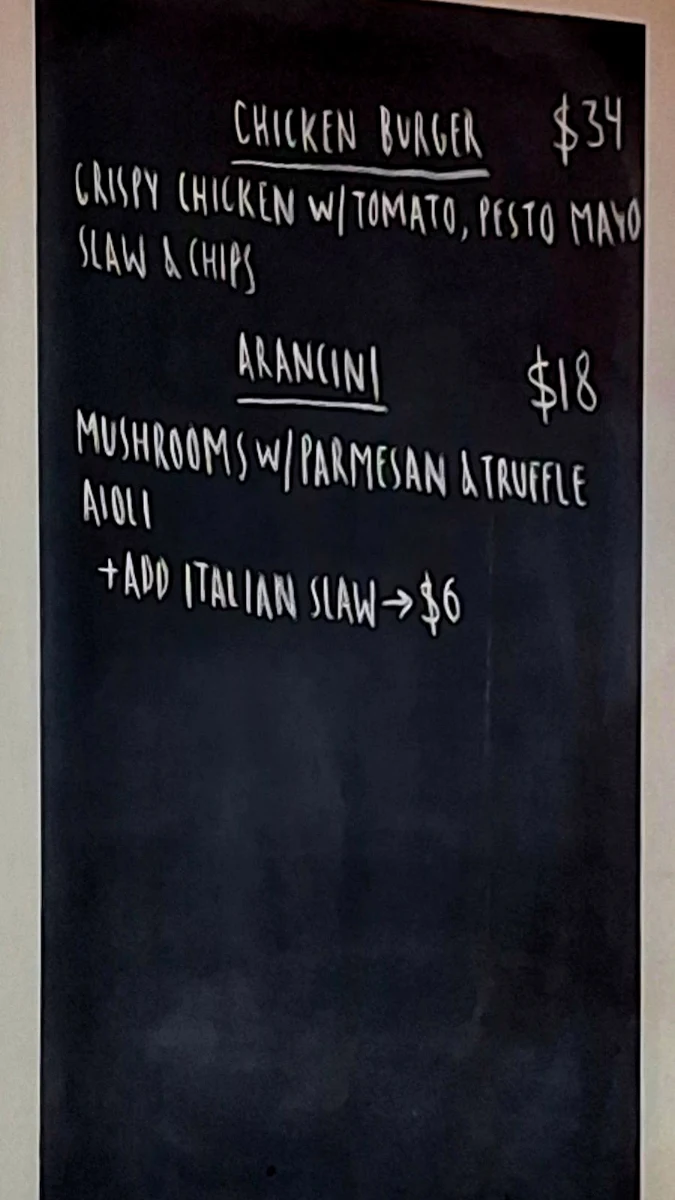 CHICKEN BURGER $34
CRISPY CHICKEN W/TOMATO, PESTO MAYO
SLAW & CHIPS
ARANCINI $18
MUSHROOMS W/PARMESAN & TRUFFLE
AIOLI
+ADD ITALIAN SLAW→$6